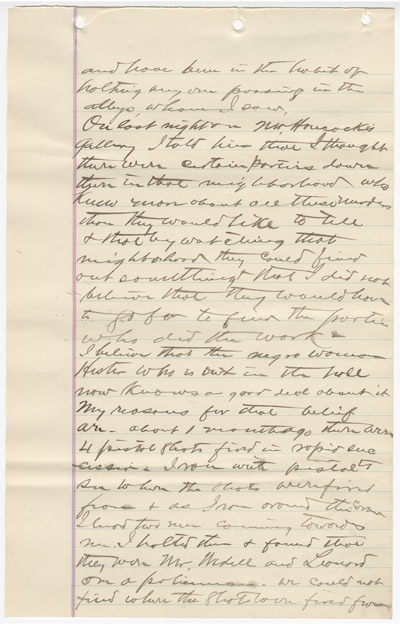 and have been in the habit of
halting any one passing in the
alleys whom I saw,
On last night on Mr Hancock's
gallery I told him that I thought
there were certain parties down
there in that neighborhood who
knew more about all these murders
than they would like to tell
& that by watching that
neighborhood they could find
out something that I did not
believe that they would have
to go far to find the parties
who did the work.
I believe that the negro woman
Hester who is out in the
now knows a good deal about it
My reasons for that belief
are - about 1 month ago there were
4 pistol shots fired in rapid suc
cession. I ran with pistol to
see where the shots were fired
from & as I ran around the corner
I heard two men coming towards
me. I halted them & found that
they were Mr. and Leonard
on a policeman. we could not
find where the shots were fired from